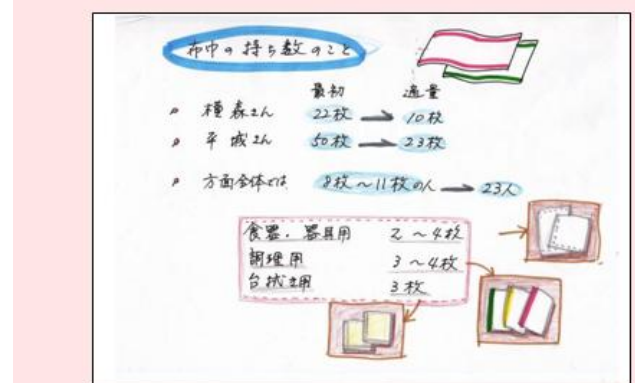 布巾の持ち数のこと
最初 適量
種森さん 22枚 → 10枚
平城さん 50枚 → 23枚
方面全体では 8枚〜11枚の人 → 23人
食器・器具用 2〜4枚
調理用 3〜4枚
台拭き用 3枚